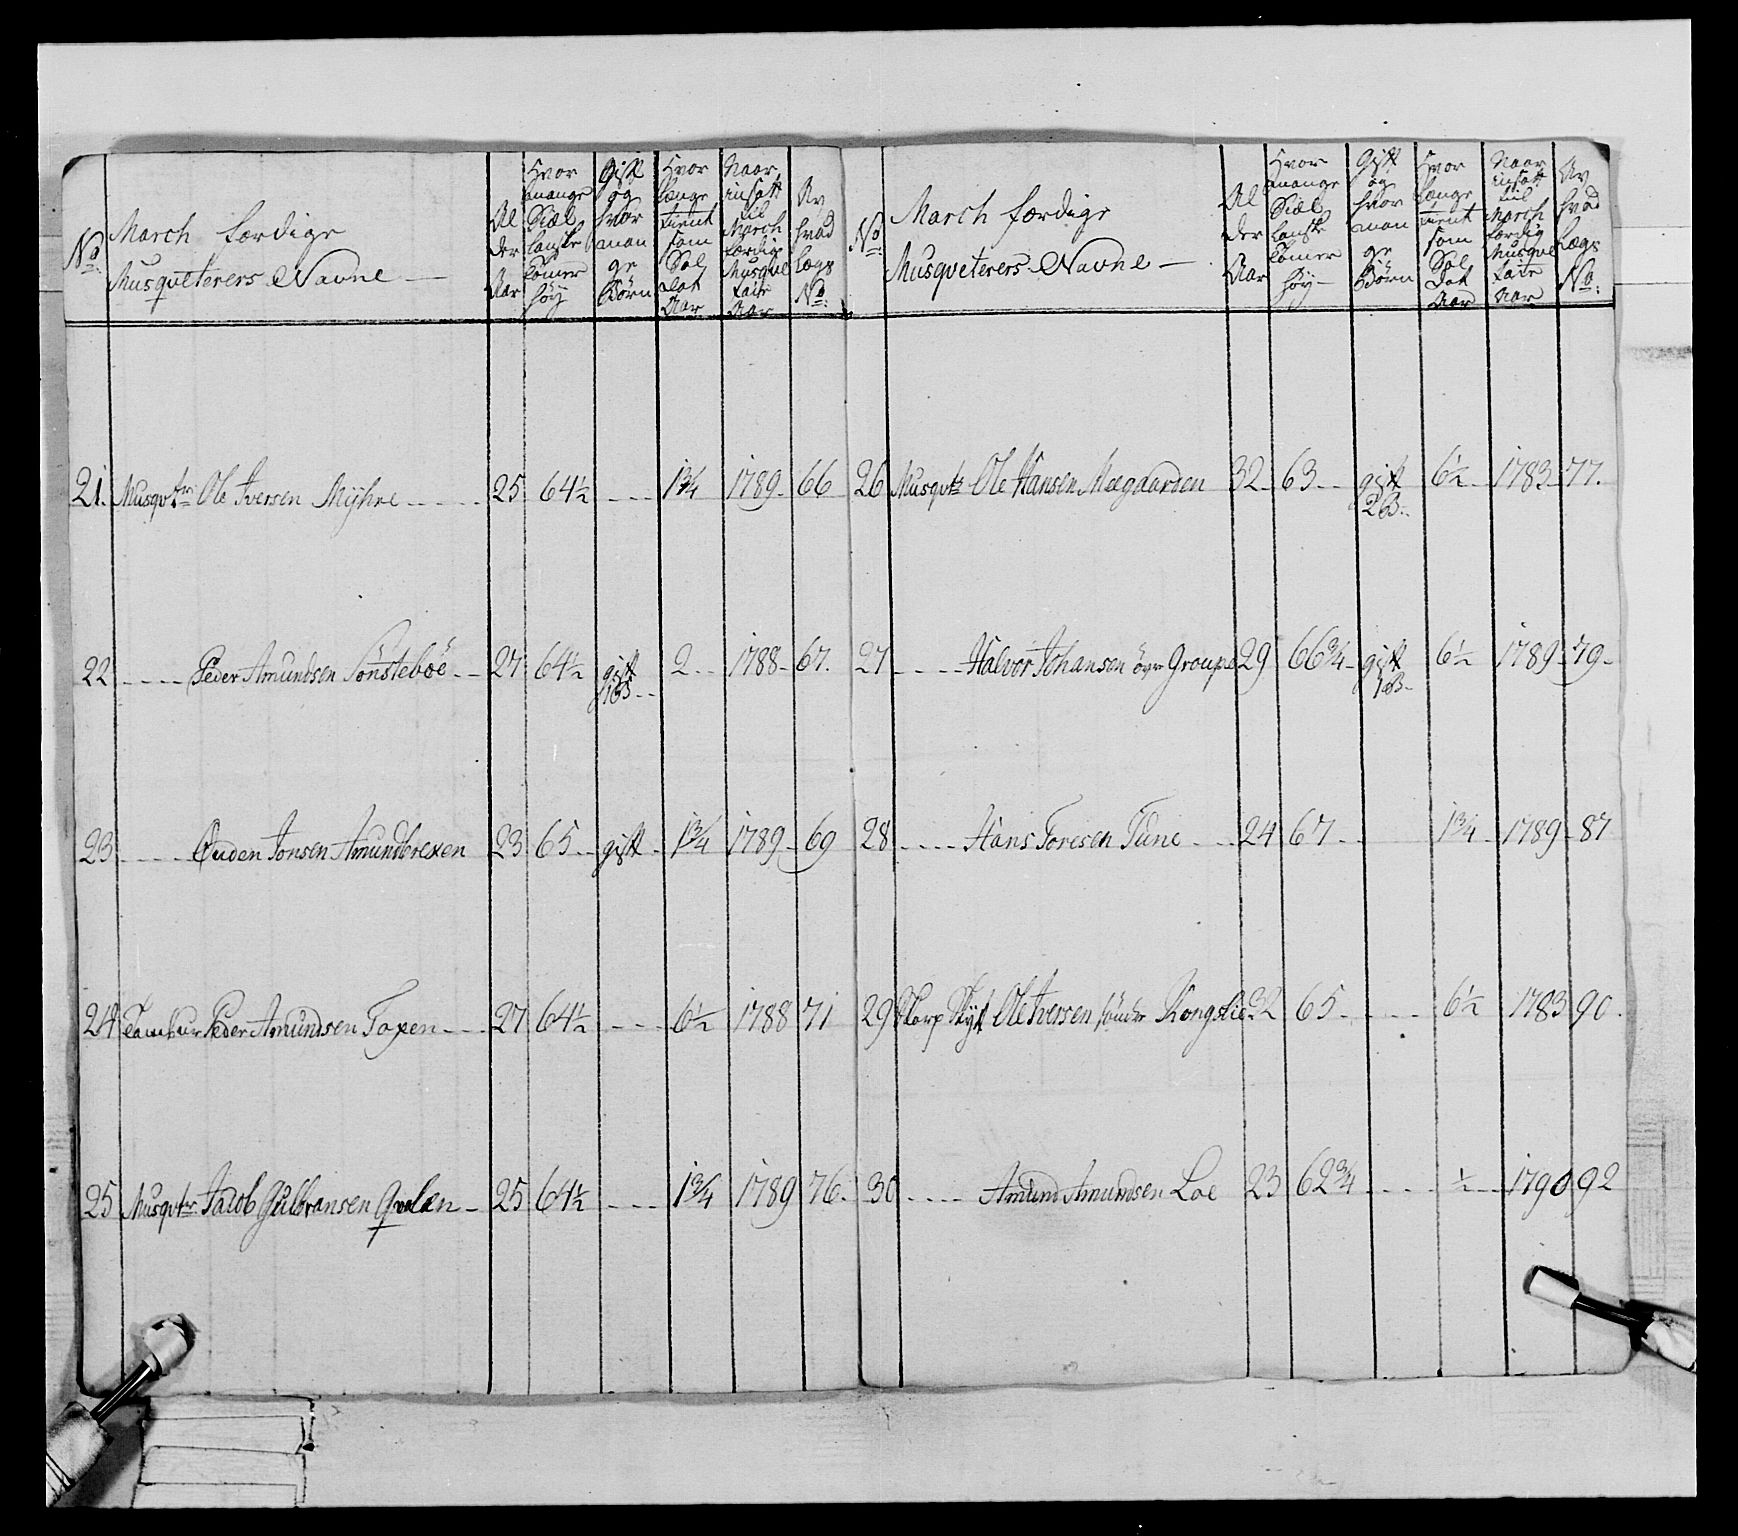 No:
March færdige
Musqveterers Navne
Al der Aar
Hvor mange Siæl landske Tomer høy
Gift og hvor man ge Børn
Hvor længe tient som Sol dat Aar
Naar indsatt til March færdige Musqve taire Aar
Av hvad Lægs No:
21. Musqvtr Ole Iversen Myhre 25 64½ 1¾ 1789 66
22 Peder Amundsen Sönsteböe 27 64½ gift 1 B 2 1788 67.
23 Ouden Jonsen Amundbrexen 23 65 gift 1¾ 1789 69
24 Tambur Peder Amundsen Toxen 27 64½ 6½ 1788 71
25 Musqvtr Jacob Gulbransen Qvalen 25 64½ 1¾ 1789 76.
No:
March færdige
Musqveterers Navne
Al der Aar
Hvor mange Siæl lanske Tomer høy
Gift og hvor man ge Börn
Hvor længe tient som Sol dat Aar
Naar indsatt til March færdig Musqve taire Aar
Av hvad Lægs No:
26 Musqvtr Ole Hansen Moegaarden 32 63 gift 2 B. 6½ 1783 77.
27 Halvor Johansen övr Groupe 29 66¾ gift 1 B 6½ 1789 79
28 Hans Toresen Tune 24 67 1¾ 1789 87
29 Skarp Skyt Ole Iversen sönder Kongslie 32 65 6½ 1783 90.
30 Amund Amundsen Loe 23 62¾ ½ 1790 92